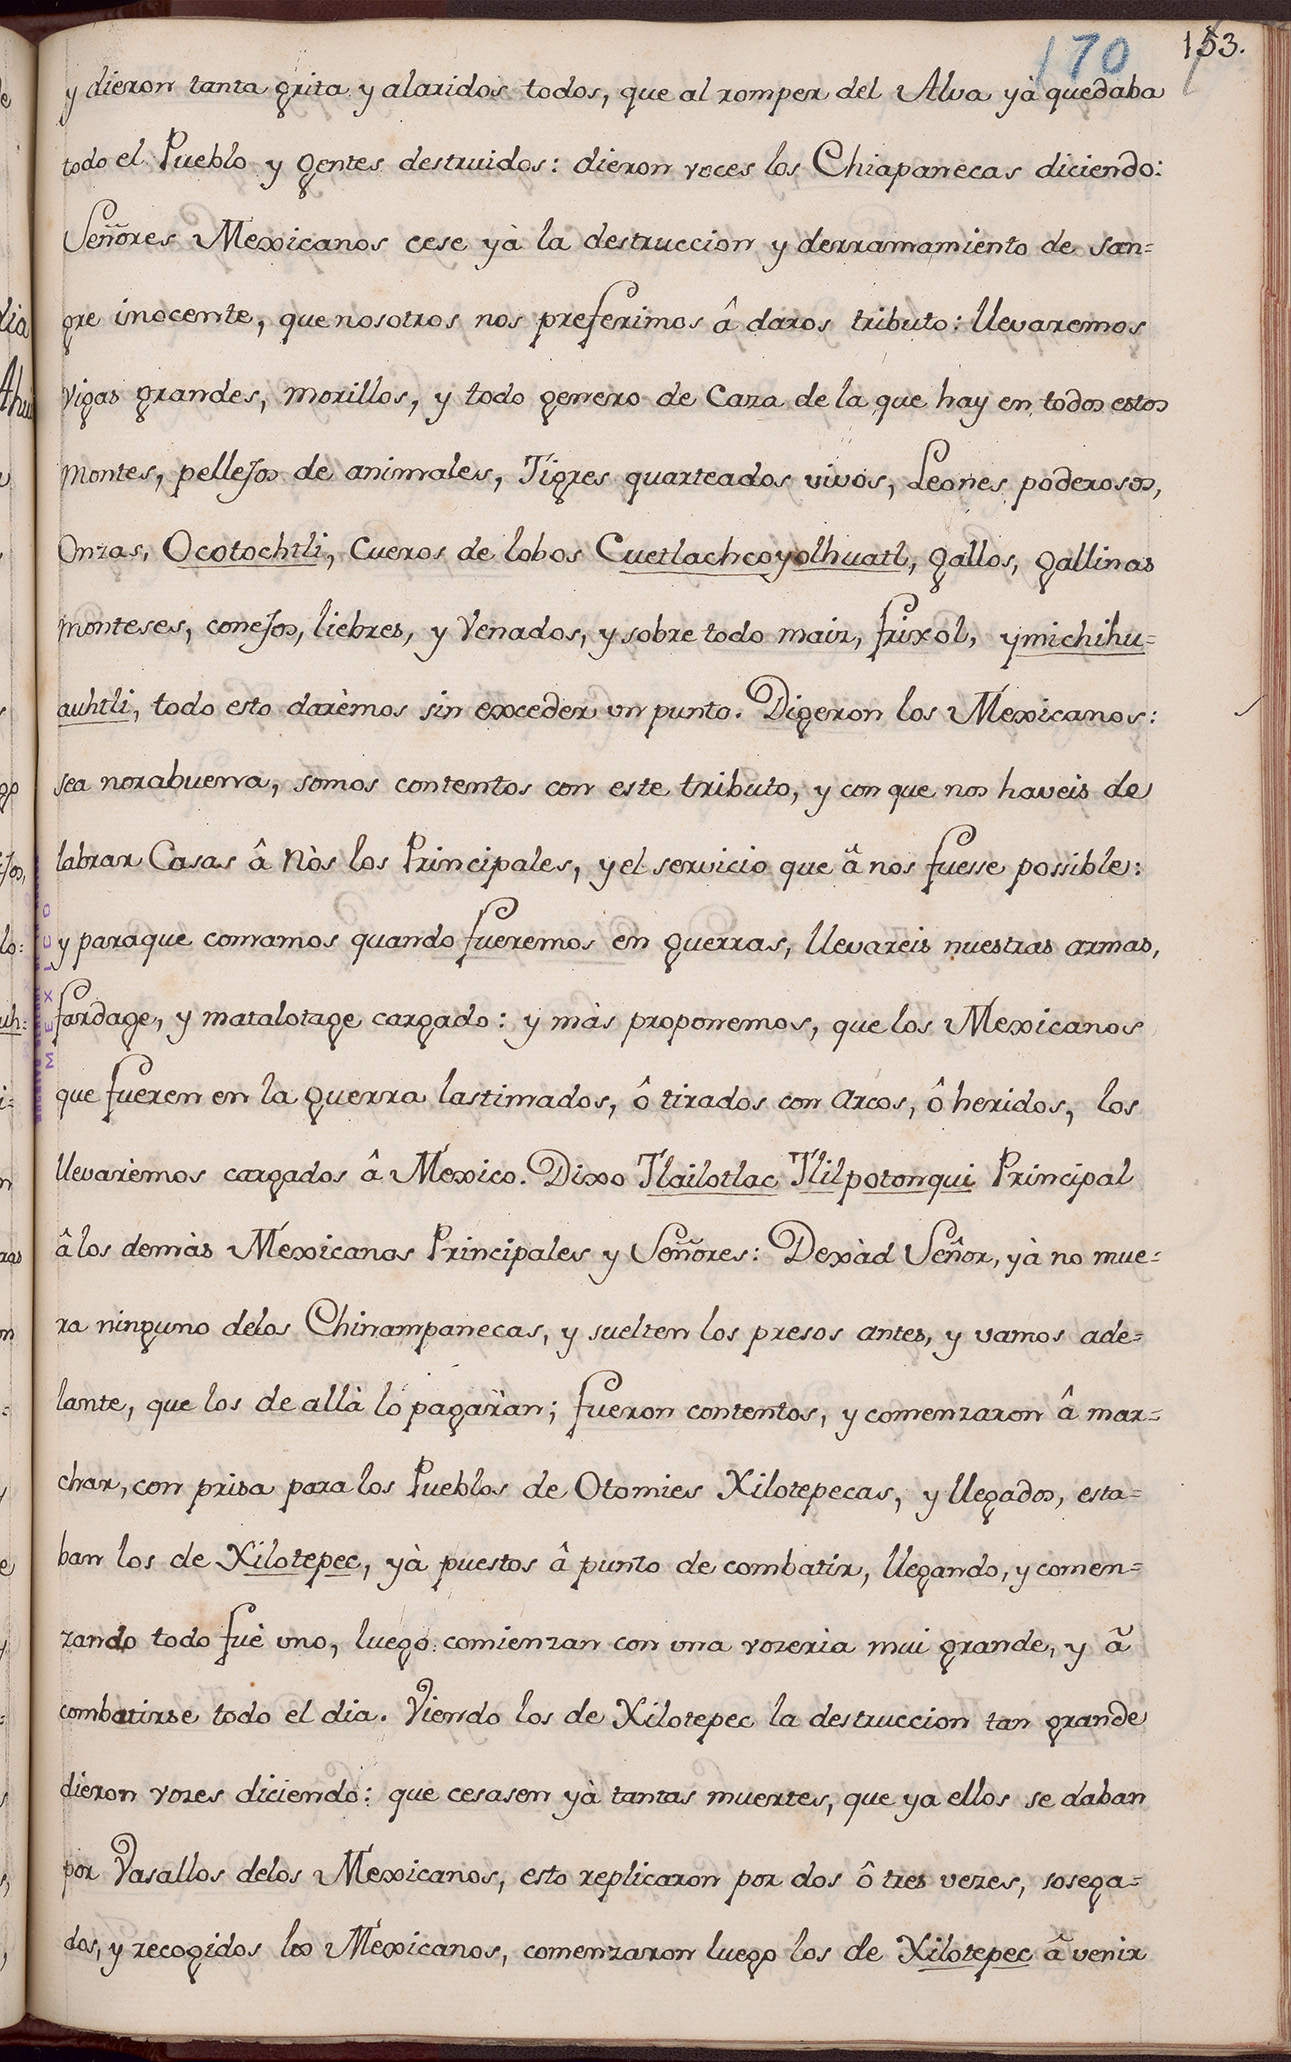 170 153.
y dieron tanta grita y alaridos todos, que al romper del Alva yà quedaba
todo el Pueblo y gentes destruidos: dieron voces los Chiapanecas diciendo:
Señores Mexicanos cese yà la destruccion y derramamiento de san=
gre inocente, que nosotros nos preferimos â daros tributo: llevaremos
vigas grandes, morillos, y todo genero de Caza de la que hay en todos estos
montes, pellejos de animales, Tigres quarteados vivos, Leones poderosos,
Onzas, Ocotochtli, Cueros de lobos Cuetlachcoyolhuatl, gallos, gallinas
monteses, conejos, liebres, y Venados, y sobre todo maiz, frixol, ymichihu=
auhtli, todo esto darèmos sin exceder un punto. Digeron los Mexicanos:
sea norabuena, somos contentos con este tributo, y con que nos haveis de
labrar Casas â Nòs los Principales, y el servicio que â nos fuesse possible:
y paraque comamos quando fueremos en guerras, llevareis nuestras armas,
fardage, y matalotage cargado: y màs proponemos, que los Mexicanos
que fueren en la guerra lastimados, ô tirados con arcos, ô heridos, los
llevarèmos cargados â Mexico. Dixo Tlailotlac Tlilpotonqui Principal
â los demàs Mexicanos Principales y Señores: Dexàd Señor, yà no mue=
ra ninguno delos Chinampanecas, y suelten los presos antes, y vamos ade=
lante, que los de allà lo pagaràn; fueron contentos, y comenzaron â mar=
char, con prisa para los Pueblos de Otomies Xilotepecas, y llegados, esta=
ban los de Xilotepec, yà puestos â punto de combatir, llegando, y comen=
zando todo fuè uno, luego comienzan con una vozeria mui grande, y â
combatirse todo el dia. Viendo los de Xilotepec la destruccion tan grande
dieron vozes diciendo: que cesasen yà tantas muertes, que ya ellos se daban
por Vasallos delos Mexicanos, esto replicaron por dos ô tres vezes, sosega=
dos, y recogidos los Mexicanos, comenzaron luego los de Xilotepec â venir
MEXICO